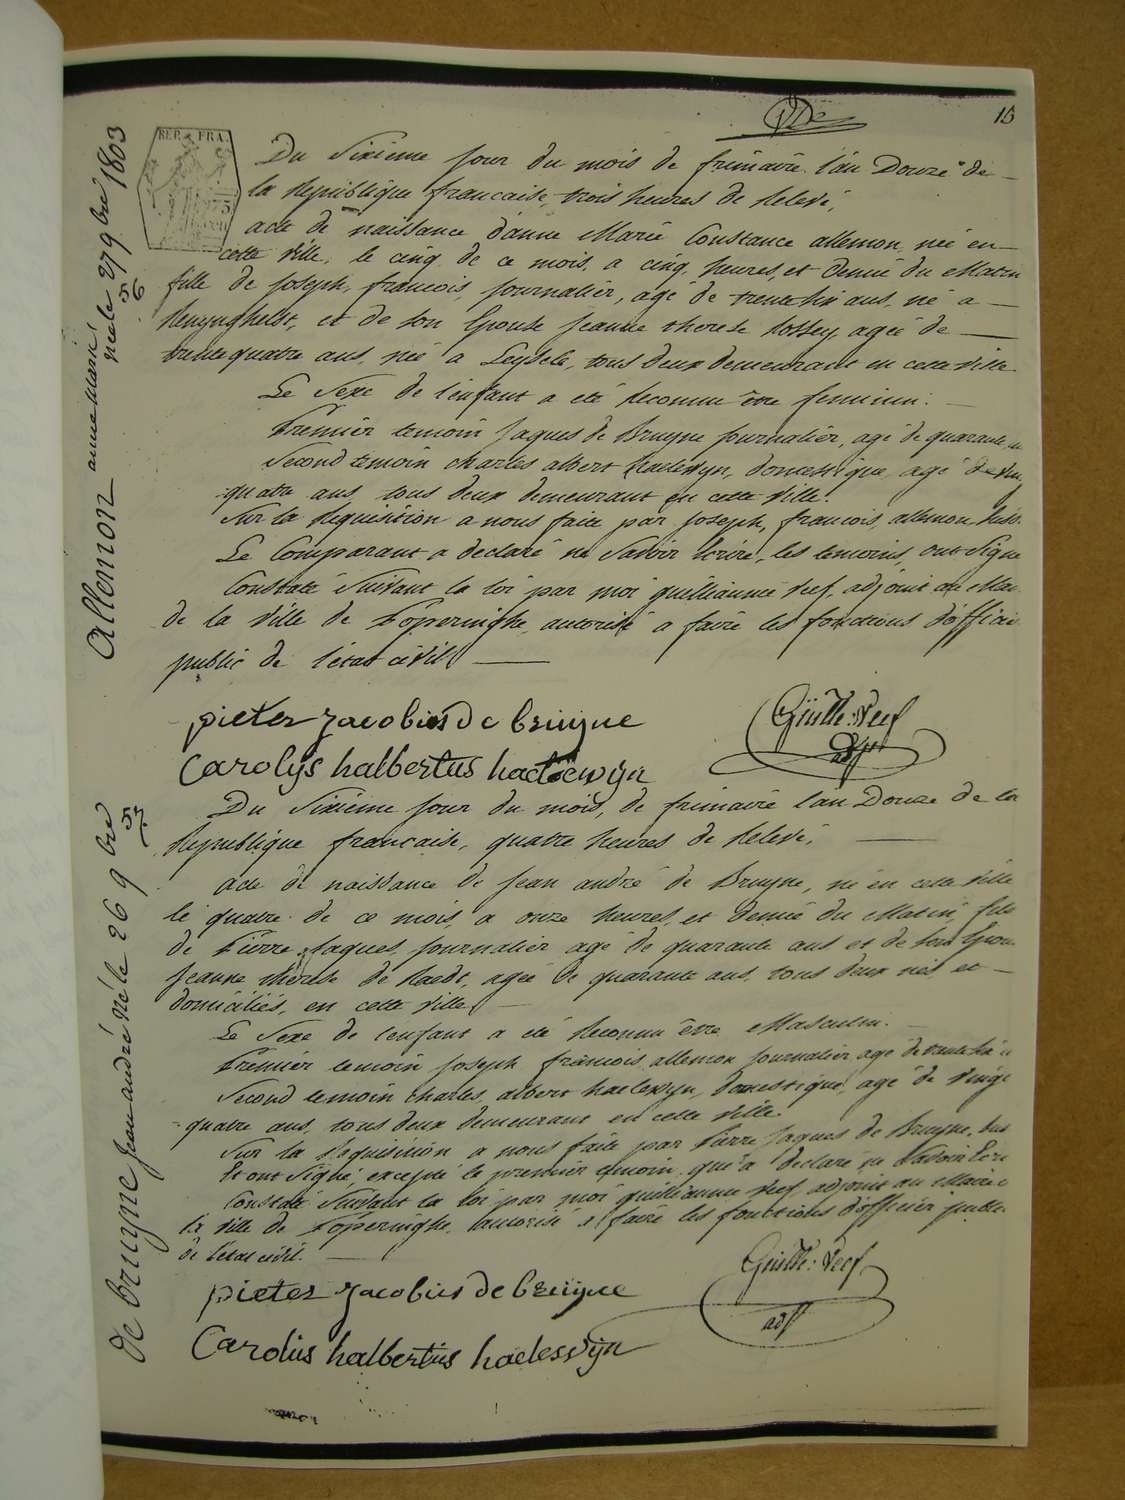 15
REP. FRA.
Du Sixième jour du mois de frimaire l'an Douze de
la Republique francaise, trois heures de Relevé,
acte de naissance d'anne Marie Constance allemon, née en
cette ville, le cinq de ce mois, a cinq heures, et demie du Matin
fille de joseph, francois, journalier, agé de trente six ans, né a
Renynghelst, et de son Epouse jeanne therese agée de
trente quatre ans, née a Leysele, tous deux demeurant en cette ville.
Le Sexe de l'enfant a été Reconnu être feminin.
Premier temoin Jaques de Bruyne journalier, agé de quarante
Second temoin charles albert haelewyn, domestique, agé de
quatre ans, tous deux demeurant en cette ville.
Sur la Requisition a nous faite par joseph, francois, allemon
Le Comparant a declaré ne Savoir Ecrire, les temoins, ont Signe
Constaté Suivant la loi par moi guilliaume Veef, adjoint au
de la Ville de Poperinghe, autorisé a faire les fonctions d'officier
public de l'état civil.
pieter jacobus de bruyne
Guille: Veef
adjt
Carolys halbertus haelewyn
Du Sixième jour du mois, de frimaire l'an Douze de la
Republique francaise, quatre heures de Relevé,
acte de naissance de jean andré de Bruyne, né en cette ville
le quatre de ce mois, a onze heures, et demie du Matin, fils
de Pierre Jaques, journalier agé de quarante ans et de son
jeanne therese de Raedt, agée de quarante ans, tous deux nés et
domiciliés, en cette ville.
Le Sexe de l'enfant a été Reconnu être Masculin.
Premier temoin joseph francois allemon journalier agé de trente six
Second temoin charles, albert haelewyn, domestique, agé de vingt
quatre ans, tous deux demeurant en cette ville.
Sur la Requisition a nous faite par Pierre Jaques de Bruyne,
Et ont Signé, excepté le premier temoin qui a declaré ne Savoir
Constaté Suivant la loi par moi guilliaume Veef adjoint au Maire
la ville de Poperinghe, autorisé a faire les fonctions d'officier public
de l'état civil.
pieter jacobus de bruyne
Guille: Veef
adjt
Carolus halbertus haelewyn
allemon anne marie
née le 27 9bre 1803
56
de bruyne jean andré né le 26 9bre
57